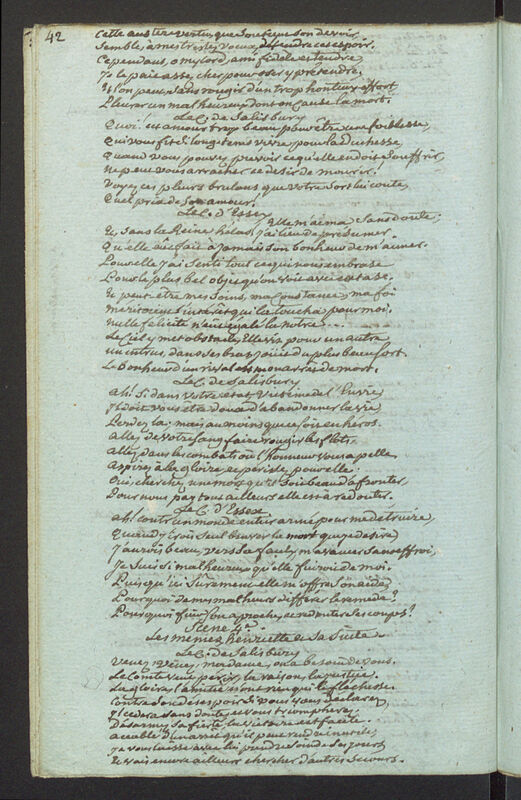 42
Cette austere vertu, que soutient son devoir,
Semble, à mes tristes voeux, defendre cet espoir.
Cependant, o mylord, ami fidele et tendre,
Je la paie assez cher pour oser y prétendre.
Et l'on peut, sans rougir d'un trop honteux effort
Pleurer un malheureux dont on cause la mort.
Le C. de Salisbury
Quoi! cet amour trop beau pour être une foiblesse,
Qui vous fit si longtems vivre pour la duchesse,
Quand vous pouvez prevoir ce qu'elle en doit souffrir,
Ne peut vous arracher ce desir de mourir!
Voyez ces pleurs brulans que votre sort lui coute,
Quel prix de son amour!
Le C. d'Essex
Elle m'aima sans doute,
Et, sans la Reine hélas! j'ai lieu de présumer
Qu'elle eût fait à jamais son bonheur de m'aimer.
Pour elle j'ai senti tout ce qui nous embrase
Pour le plus bel objet qu'on voie avec extase.
Et peut-être mes soins, ma constance, ma foi
meritoient l'intérêt qui la toucha pour moi.
nulle felicité n'eut égalé la nôtre ...
Le Ciel y met obstacle, Elle vit pour un autre
un intrus, dans ses bras, jouit du plus beau sort.
Le Bonheur d'un rival est mon arrêt de mort.
Le C. de Salisbury
Ah! Si dans votre état, victime de l'Envie
Il doit vous être doux d'abandonner la vie
Perdez la; mais au moins que ce soit en héros.
Allez de votre sang faire rougir les flots.
Allez dans les combats où l'honneur vous appelle
Aspirer à la gloire, et perissez pour elle.
Oui, cherchez une mort qu'il soit beau d'affronter,
Pour nous partout ailleurs elle est à redouter.
Le C. d'Essex
Ah! contre un monde entier armé pour me détruire,
Quand j'irois seul braver la mort que je désire,
J'aurois beau, vers sa faulx, m'avancer sans effroi,
Je suis si malheureux qu'elle fuiroit de moi.
Puis qu'ici surement elle m'offre son aide,
Pourquoi de mes malheurs différer le remede?
Pourquoi fuir son aproche, et redouter ses coups?
Scene 4e
Les mêmes, henriette et sa Suite.
Le C. de Salisbury
Venez, venez, madame, on a besoin de vous.
Le Comte veut périr; la raison, la justice,
La gloire, l'amitié n'ont rien qui le fléchisse.
Contre son désespoir si vous vous déclarez,
Il cedera sans doute, et vous triompherez.
désarmez sa fierté, la victoire est facile.
accablé d'un arrêt qu'il peut rendre inutile,
Je vous laisse avec lui prendre soin de ses jours
Et vais encore ailleurs chercher d'autres secours.